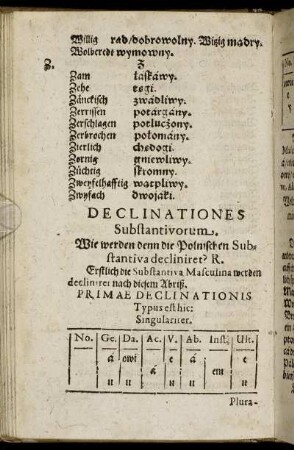 Willig rad/dobrowolny. Witzig mądry.
Wolberedt wymowny.
Z. Z
Zam łaskáwy.
Zehe tęgi.
Zänckisch zwadliwy.
Zerrissen potárgány.
Zerschlagen potłuczony.
Zerbrochen połomány.
Zierlich chędogi.
Zornig gniewliwy.
Züchtig skromny.
Zweyfelhafftig wątpliwy.
Zwyfach dwojáki.
DECLINATIONES
Substantivorum.
Wie werden denn die Polnischen Sub-
stantiva decliniret? R.
Erstlich die Substantiva Masculina werden
decliniret nach diesem Abriß.
PRIMAE DECLINATIONIS
Typus est hic:
Singulariter.
No. Ge. Da. Ac. V. Ab. Inst. Ult.
á owi e á e
á em
u u u
Plura-